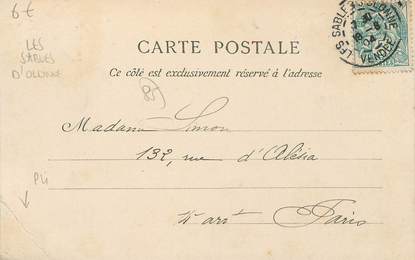 6€
LES SABLES D'OLONNE
VENDÉE
CARTE POSTALE
Ce côté est exclusivement réservé à l'adresse
LES
SABLES
D'OLONNE
85
Madame Simon
132, rue d'Alésia
Pli
Paris